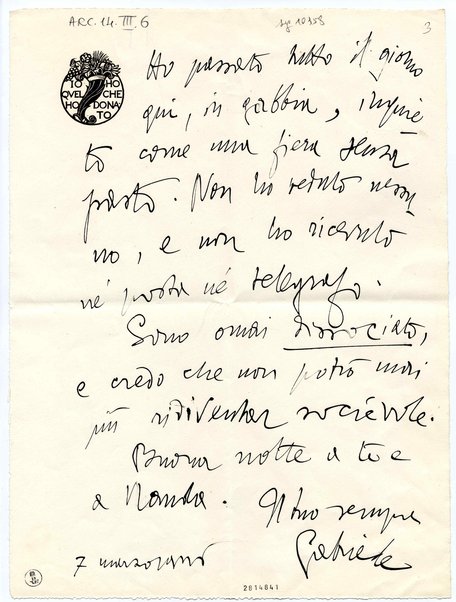 ARC. 14. III. 6
3
IO HO
QVEL CHE
HO DONA
TO
Ho passato tutto il giorno
qui, in gabbia, inquie
to come una fiera senza
pasto. Non ho veduto nessu-
no, e non ho ricevuto
né posta né telegrafo.
Sono omai dissociato,
e credo che non potrò mai
più ridiventar socievole.
Buona notte a te e
a Nanda. Il tuo sempre
Gabriele
7 marzo
2814841